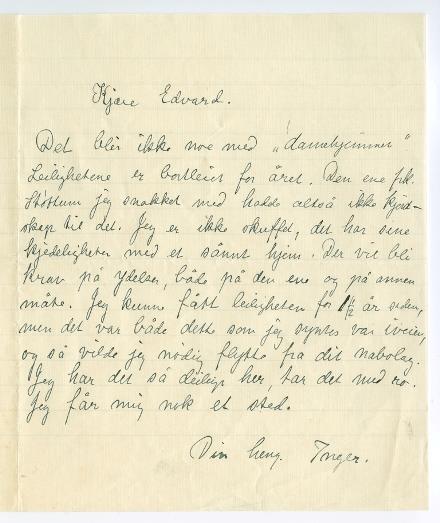 Kjære Edvard.
Det blir ikke noe med "damehjemmet"
Leilighetene er bortleiet for året. Den ene frk.
jeg snakket med hadde altså ikke kjend-
skap til det. Jeg er ikke skuffet, det har sine
kjedeligheter med et sånnt hjem. Der vil bli
krav på ydelser, både på den ene og på annen
måte. Jeg kunne fått leiligheten for 1 1/2 år siden,
men det var både dette som jeg syntes var iveien,
og så vilde jeg nødig flytte fra dit nabolag.
Jeg har det så deilig her, tar det med ro.
Jeg får mig nok et sted.
Din heng. Inger.